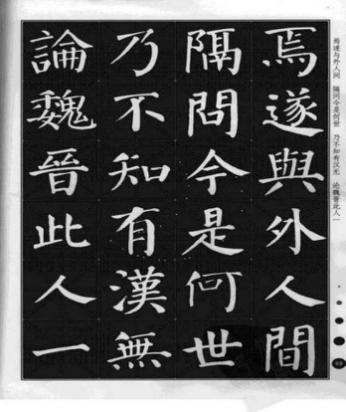 焉遂與外人間
隔問今是何世
乃不知有漢無
論魏晉此人一
焉遂与外人间 隔问今是何世 乃不知有汉无 论魏晋此人一